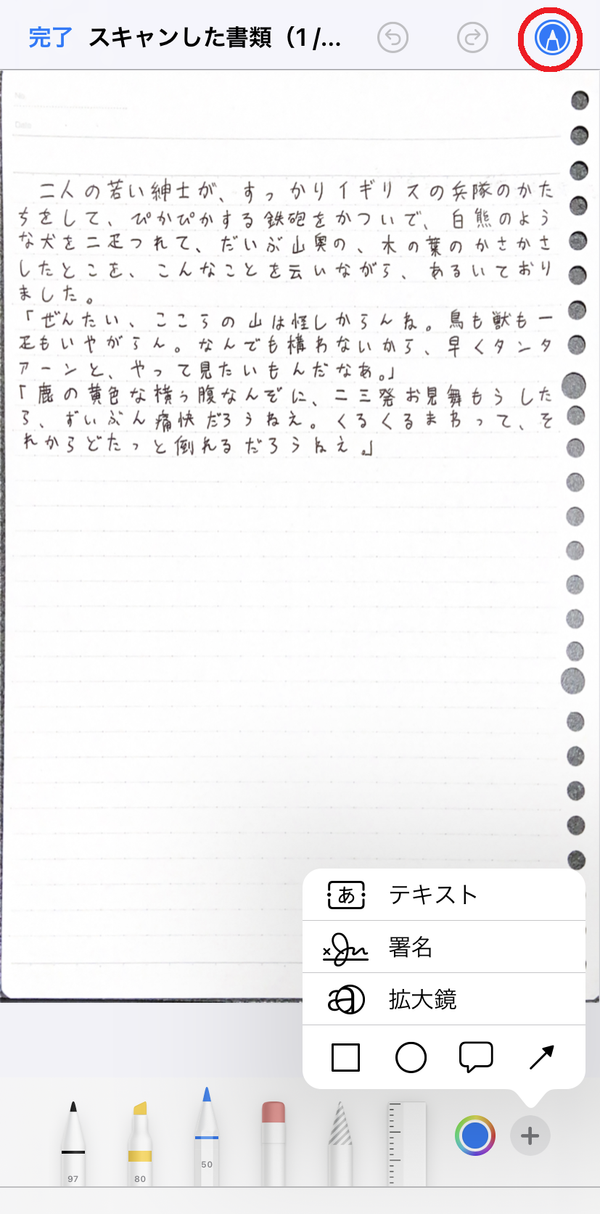 完了 スキャンした書類（1 /...
No.
Date
二人の若い紳士が、すっかりイギリスの兵隊のかた
ちをして、ぴかぴかする鉄砲をかついで、白熊のよう
な犬を二疋つれて、だいぶ山奥の、木の葉のかさかさ
したとこを、こんなことを云いながら、あるいており
ました。
「ぜんたい、ここらの山は怪しからんね。鳥も獣も一
疋もいやがらん。なんでも構わないから、早くタンタ
アーンと、やって見たいもんだなあ。」
「鹿の黄色な横っ腹なんぞに、二三発お見舞もうした
ら、ずいぶん痛快だろうねえ。くるくるまわって、そ
れからどたっと倒れるだろうねえ。」
あ テキスト
署名
a 拡大鏡
97
80
50